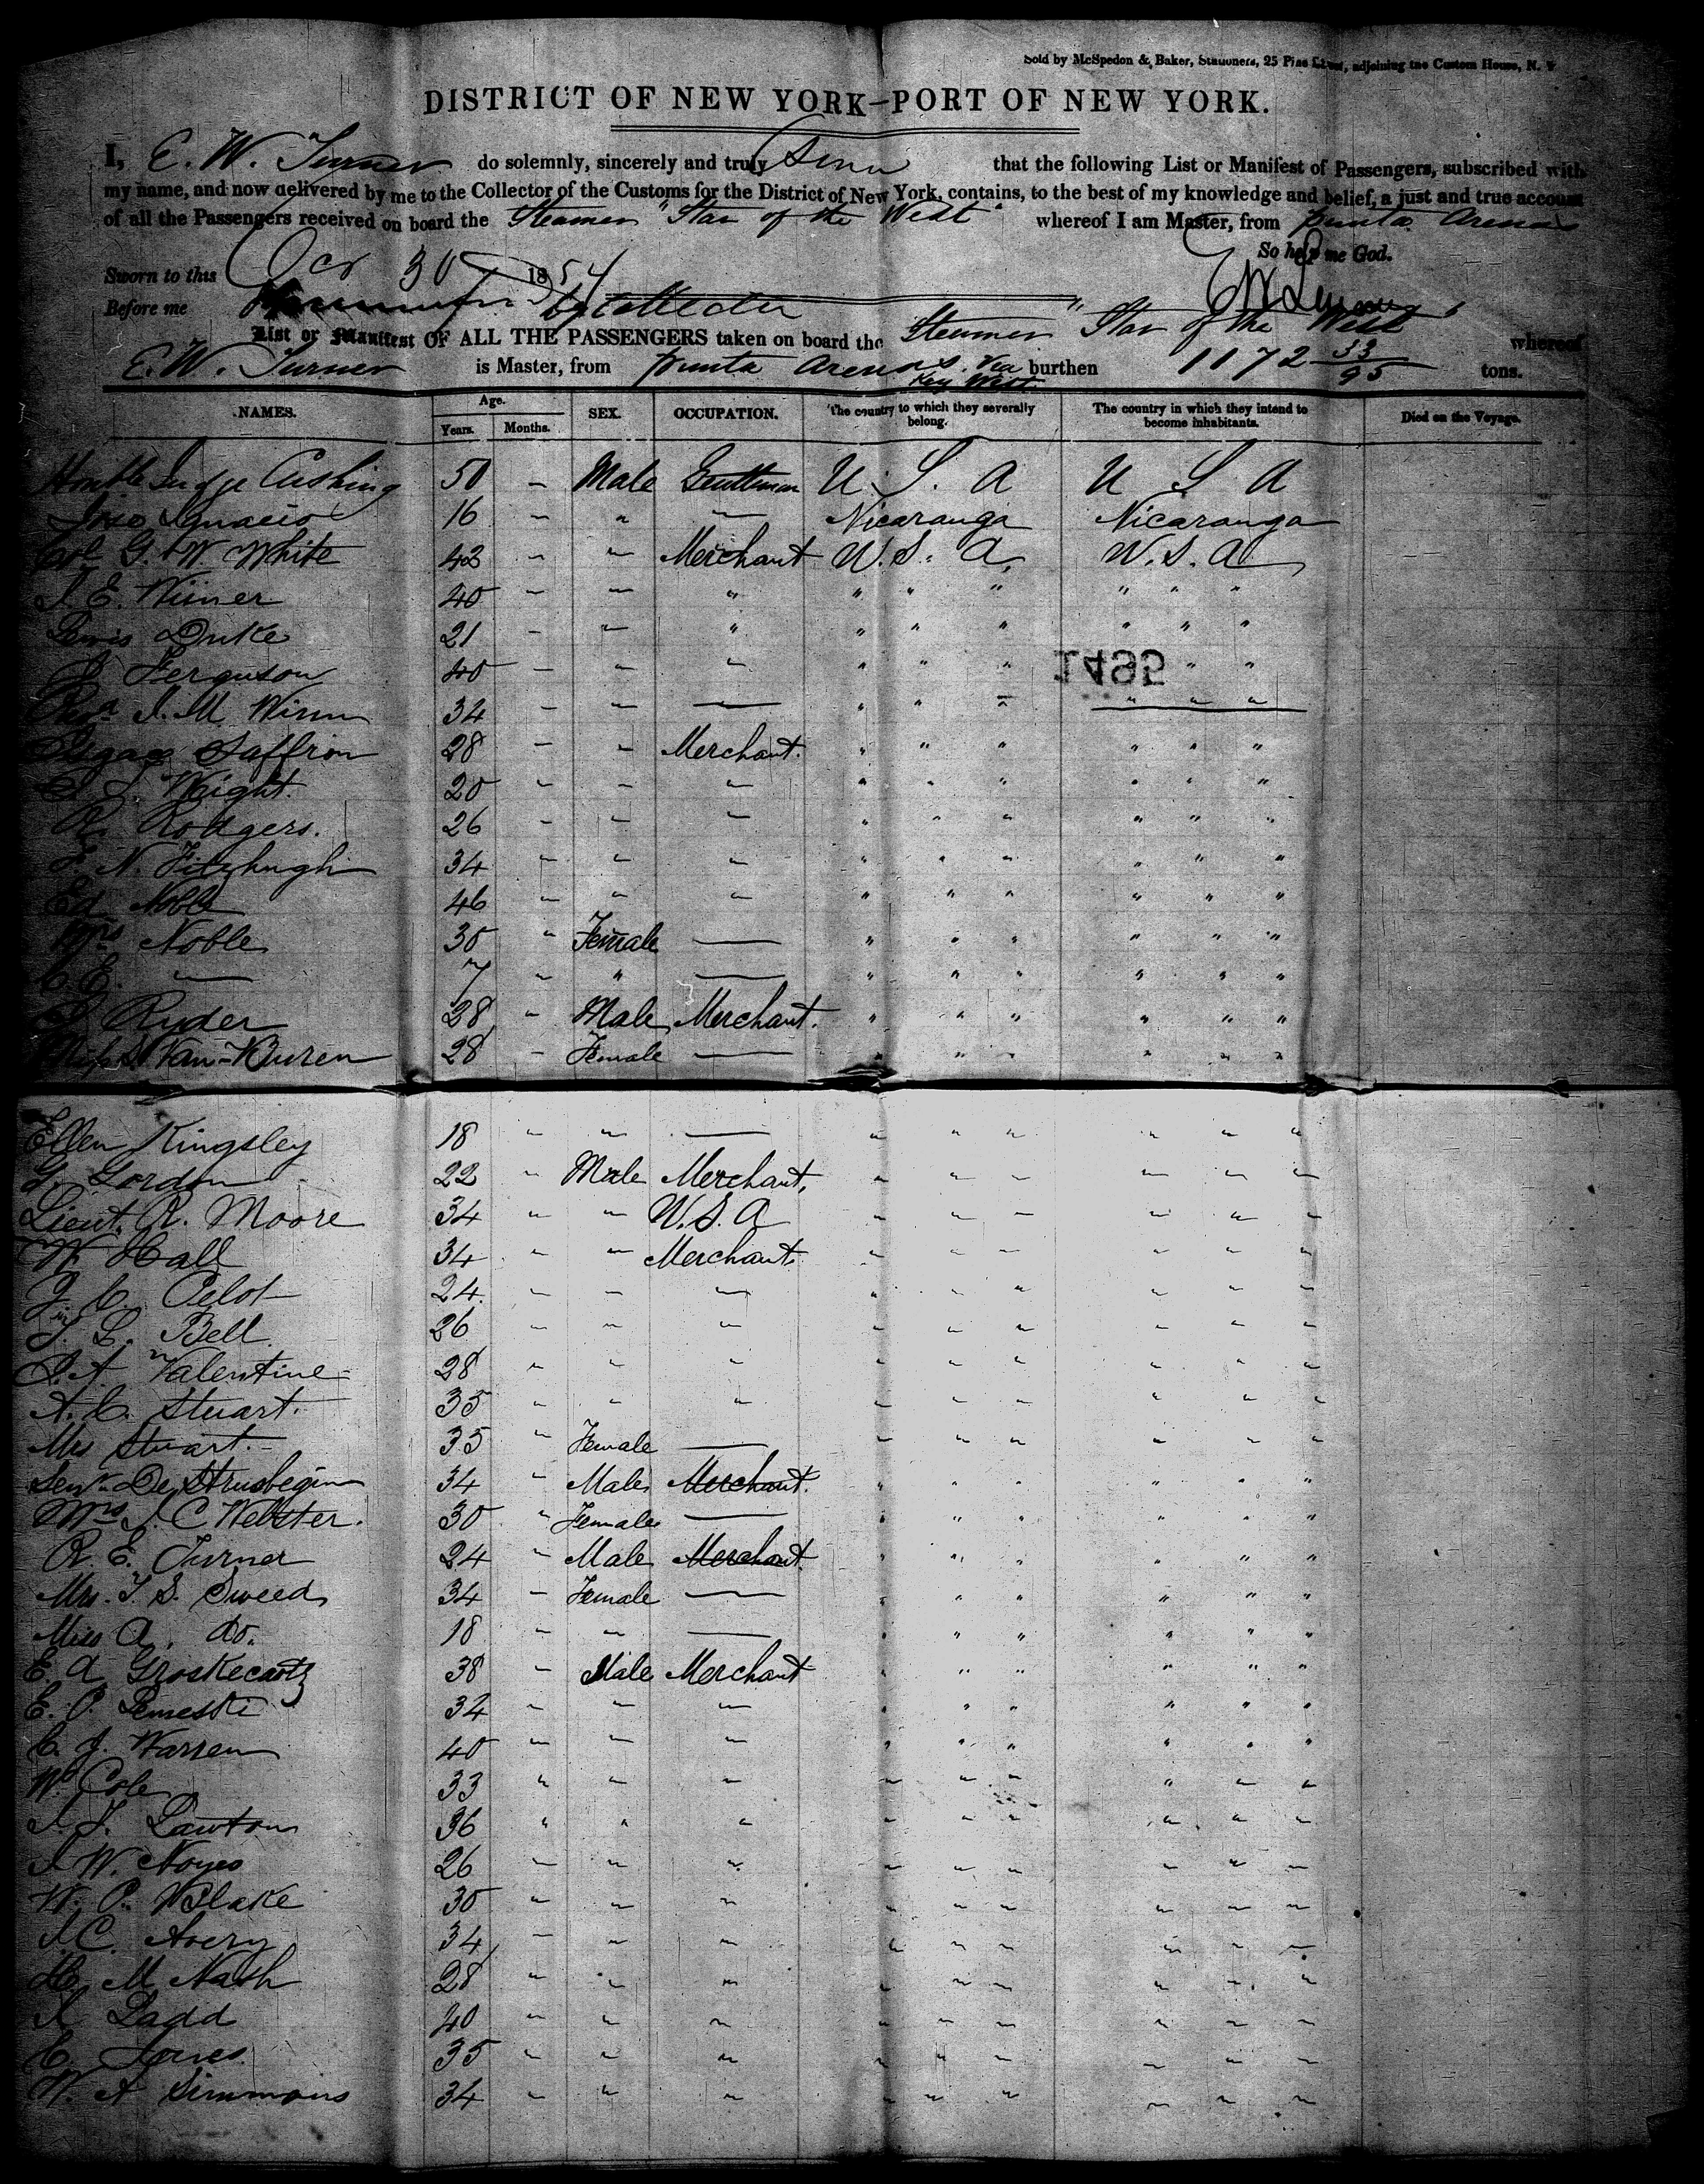 Sold by McSpedon & Baker, Stationers, 25 Pine Street, adjoining the Custom House, N. Y.
DISTRICT OF NEW YORK—PORT OF NEW YORK.
I, E. W. Turner do solemnly, sincerely and truly that the following List or Manifest of Passengers, subscribed with
my name, and now delivered by me to the Collector of the Customs for the District of New York, contains, to the best of my knowledge and belief, a just and true account
of all the Passengers received on board the Steamer "Star of the West" whereof I am Master, from punta Arenas
So help me God.
Sworn to this Oct 30 1854
Before me
List or Manifest OF ALL THE PASSENGERS taken on board the Steamer "Star of the West" whereof
E. W. Turner is Master, from punta Arenas. Via Key West burthen 1172 33/95 tons.
NAMES. Age. Years. Months. SEX. OCCUPATION. The country to which they severally belong. The country in which they intend to become inhabitants. Died on the Voyage.
Honble Judge Cushing 50 - Male Gentleman U. S. A U S A
Jose Ignacio 16 - " — Nicaragua Nicaragua
Col. G. W. White 43 - " Merchant U. S. A. U. S. A
J. E. Winer 40 - " " " " " " " "
Lewis Duke 21 - " " " " " " " "
Ferguson 40 - " " " " " " "
1495
J. M. Winn 34 - " — " " " " " "
Isaac Saffron 28 - " Merchant. " " " " " "
Wright. 20 - " " " " " " " "
R. Rodgers. 26 - " " " " " " " "
N. Fitzhugh 34 - " " " " " " " "
Ed Noble 46 - " " " " " " " "
Mrs Noble 30 " Female — " " " " " "
C. E. — 7 - " — " " " " " "
Ryder 28 - Male Merchant. " " " " " "
Miss S Van-Buren 28 - Female — " " " " " "
Ellen Kingsley 18 " " — " " " " " "
G. Gordon 22 " Male Merchant, " " " " " "
Lieut. R. Moore 34 " " U. S. A " " " " " "
W Hall 34 " " Merchant. " " " " " "
J. C. Pelot 24. " " " " " " " " "
J. L. Bell 26 " " " " " " " " "
J. A. Valentine 28 " " " " " " " " "
A. C. Stuart. 35 " " " " " " " " "
Mrs Stuart. 35 " Female — " " " " " "
34 " Male Merchant. " " " " " "
Mrs J. C Webster. 30 " Female — " " " " " "
R. E. Turner 24 " Male Merchant " " " " " "
Mrs. T. S. Sweed 34 - Female — " " " " " "
Miss A. do. 18 " " — " " " " " "
E. A Groskecautz 38 - Male Merchant " " " " " "
E. P. Lemeski 34 " " " " " " " " "
C. J. Warren 40 " " " " " " " " "
W. Cole 33 " " " " " " " " "
J. F. Lawton 36 " " " " " " " " "
J W. Noyes 26 " " " " " " " " "
W. P. Blake 30 " " " " " " " " "
J. C. Avery 34 " " " " " " " " "
H. M. Nash 28 " " " " " " " " "
Ladd 40 " " " " " " " " "
C. Jones 35 " " " " " " " " "
W. A Simmons 34 " " " " " " " " "